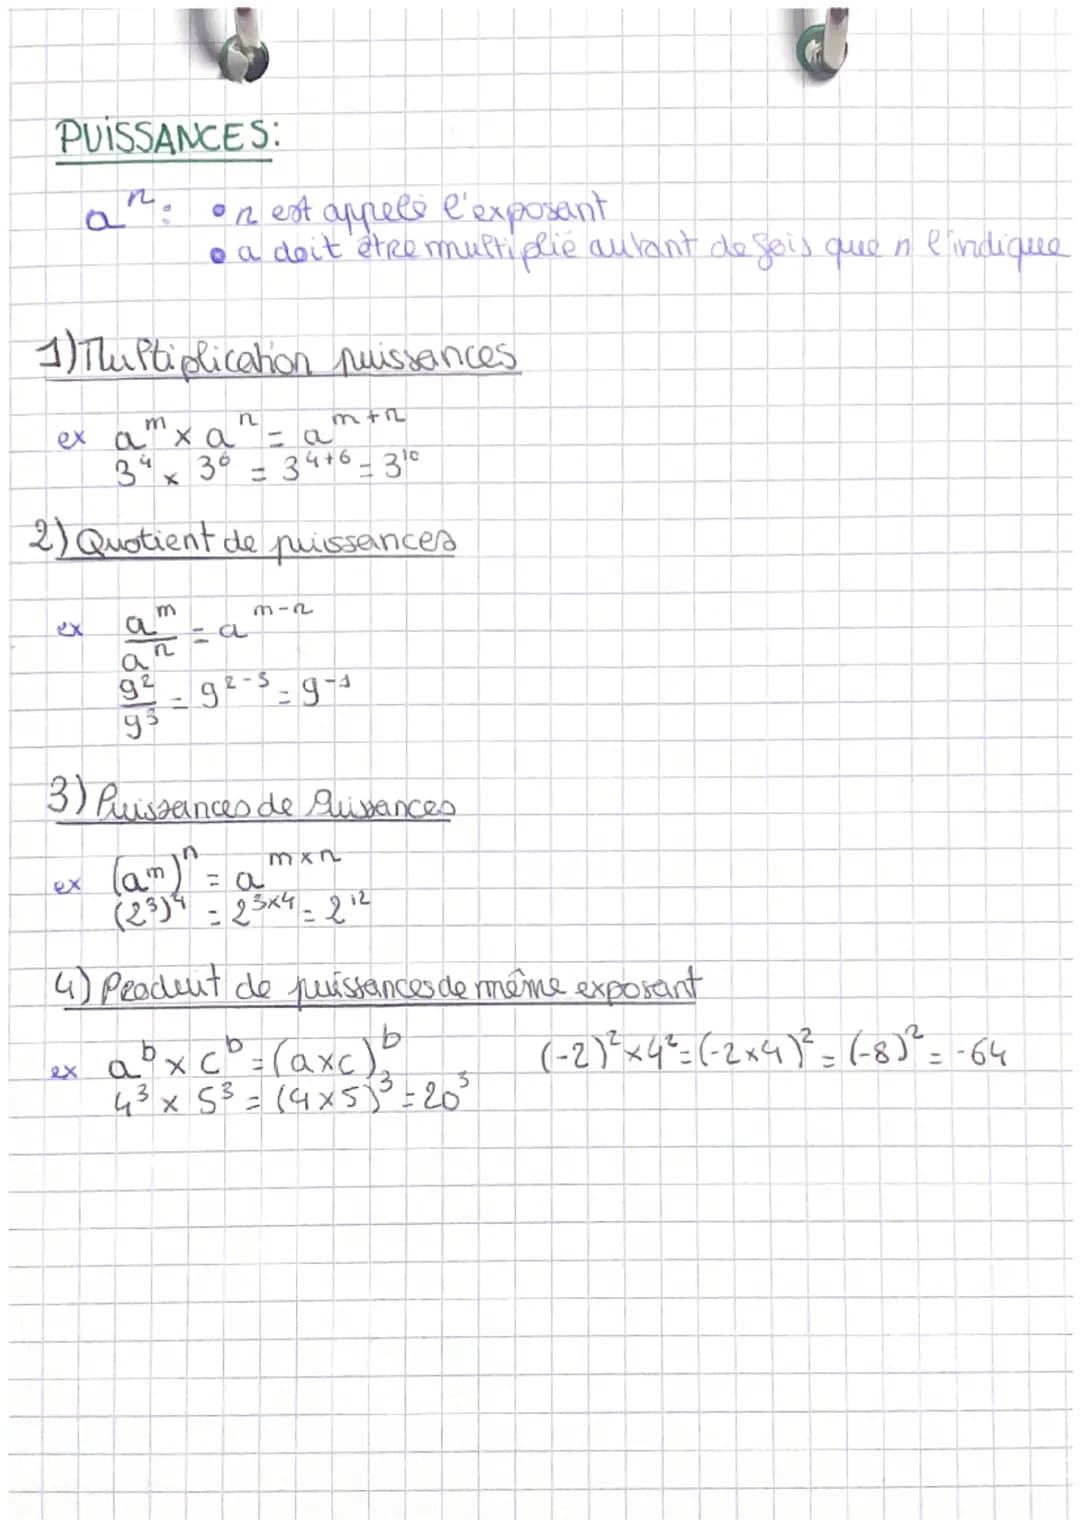 PUISSANCES:
aⁿ: • n est appelé l'exposant
• a doit être multiplié autant de fois que n l'indique
1) Multiplication puissances
ex aᵐ × aⁿ = aᵐ⁺ⁿ
3⁴ × 3⁶ = 3⁴⁺⁶ = 3¹⁰
2) Quotient de puissances
ex aᵐ/aⁿ = aᵐ⁻ⁿ
9²/9³ = 9²⁻³ = 9⁻¹
3) Puissances de Puissances
ex (aᵐ)ⁿ = aᵐˣⁿ
(2³)⁴ = 2³ˣ⁴ = 2¹²
4) Produit de puissances de même exposant
ex aᵇ × cᵇ = (a×c)ᵇ (-2)² × 4² = (-2×4)² = (-8)² = -64
4³ × 5³ = (4×5)³ = 20³